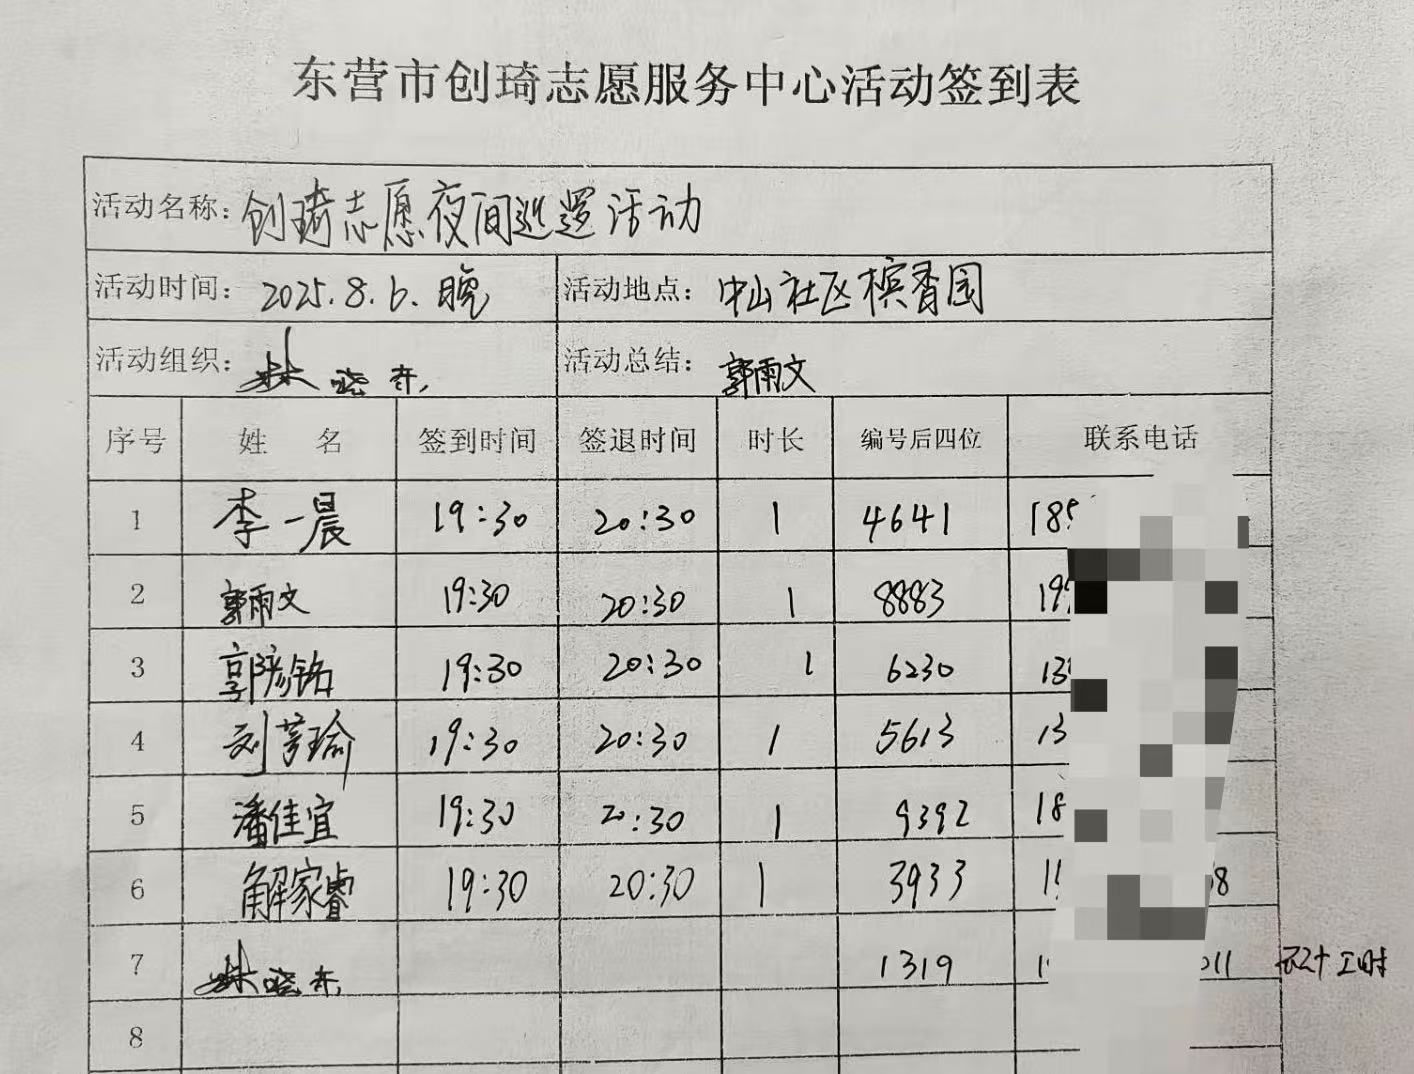 东营市创琦志愿服务中心活动签到表
活动名称: 创琦志愿夜间巡逻活动
活动时间: 2025.8.6.晚 活动地点: 中山社区槟香园
活动组织: 林晓东 活动总结: 郭雨文
序号 姓 名 签到时间 签退时间 时长 编号后四位 联系电话
1 李一晨 19:30 20:30 1 4641 185
2 郭雨文 19:30 20:30 1 8883 199
3 郭彦铭 19:30 20:30 1 6230 13
4 刘芳瑜 19:30 20:30 1 5613 13
5 潘佳宜 19:30 20:30 1 9392 18
6 解家睿 19:30 20:30 1 3933 1 8
7 林晓东 1319 1 011 不计工时
8